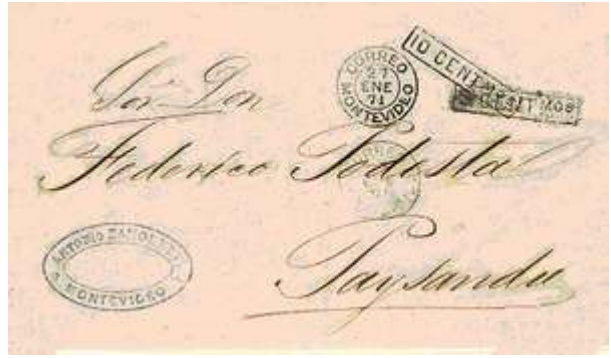 Sor. Don
Federico Podesta
Paysandu
CORREO
27
ENE
71
MONTEVIDEO
10 CENT
ANTONIO
MONTEVIDEO